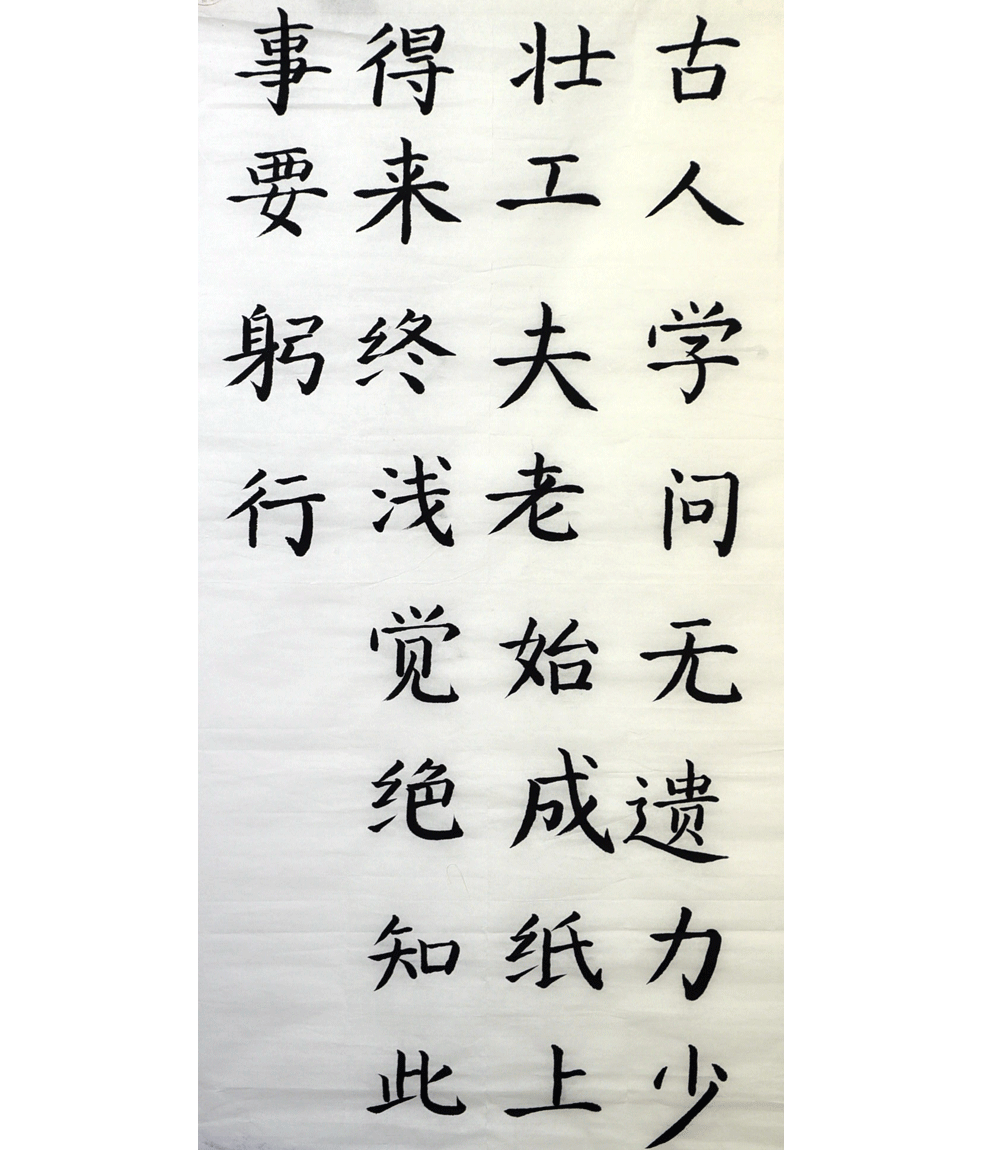 古人学问无遗力少
壮工夫老始成纸上
得来终浅觉绝知此
事要躬行